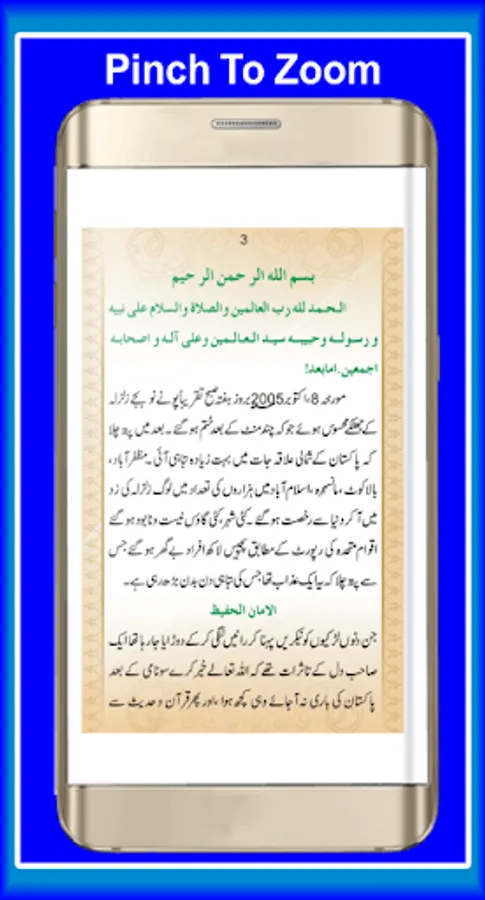 Pinch To Zoom
3
بسم الله الر حمن الر حیم
الحمد لله رب العالمین والصلاة والسلام علی نبیه
و رسولہ وحبیبہ سید العالمین وعلی آلہ و اصحابہ
اجمعین۔امابعد!
مورخہ 8،اکتوبر2005 بروز ہفتہ صبح تقریباً پونے نو بجے زلزلہ
کے جھٹکے محسوس ہوئے جو کہ چند منٹ کے بعد ختم ہو گئے۔ بعد میں پتہ چلا
کہ پاکستان کے شمالی علاقہ جات میں بہت زیادہ تباہی آئی۔ مظفرآباد،
بالاکوٹ، مانسہرہ، اسلام آباد میں ہزاروں کی تعداد میں لوگ زلزلہ کی زد
میں آ کر دنیا سے رخصت ہو گئے۔ کئی شہر، کئی گاؤں نیست و نابود ہو گئے
اقوام متحدہ کی رپورٹ کے مطابق پچیس لاکھ افراد بے گھر ہو گئے جس
سے پتہ چلا کہ یہ ایک عذاب تھا جس کی تباہی دن بدن بڑھ رہی ہے۔
الامان الحفیظ
جن دنوں لڑکیوں کو نیکریں پہنا کر رانیں ننگی کر کے دوڑایا جا رہا تھا ایک
صاحب دل کے تاثرات تھے کہ اللہ تعالےٰ خیر کرے سونامی کے بعد
پاکستان کی باری نہ آ جائے وہی کچھ ہوا، اور پھر قرآن و حدیث سے